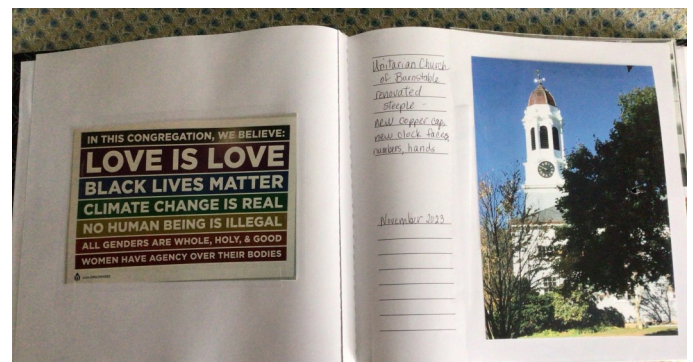 IN THIS CONGREGATION, WE BELIEVE:
LOVE IS LOVE
BLACK LIVES MATTER
CLIMATE CHANGE IS REAL
NO HUMAN BEING IS ILLEGAL
ALL GENDERS ARE WHOLE, HOLY, & GOOD
WOMEN HAVE AGENCY OVER THEIR BODIES
Unitarian Church
of Barnstable
renovated
steeple -
new copper cap,
new clock faces,
numbers, hands
November 2023